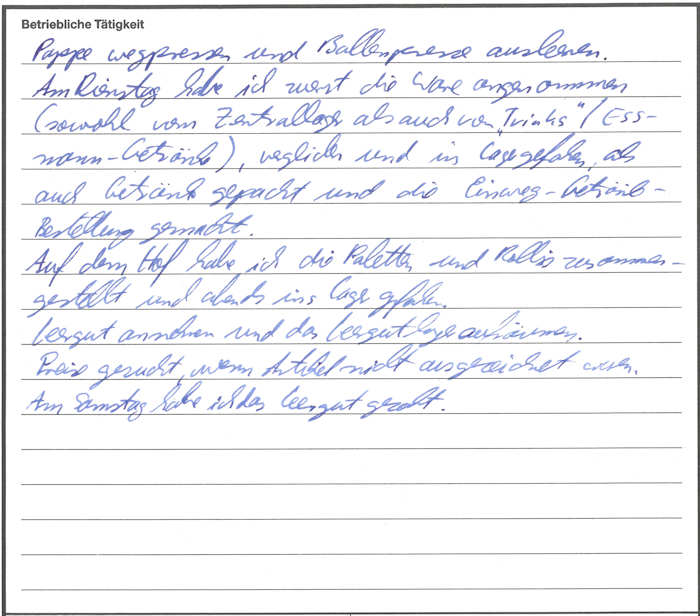 Betriebliche Tätigkeit
Pappe wegpressen und Ballenpresse ausleeren.
Am Dienstag habe ich zuerst die Ware angenommen
(sowohl vom Zentrallager als auch von „Trinks“ / Ess-
mann-Getränke), verglichen und in Lager gefahren, als
auch Getränke gepackt und die Einweg-Getränke-
Bestellung gemacht.
Auf dem Hof habe ich die Paletten und Rollis zusammen-
gestellt und abends ins Lager gefahren.
Leergut annehmen und das Leergutlager aufräumen.
Preise gesucht, wenn Artikel nicht ausgezeichnet waren.
Am Samstag habe ich das Leergut gezählt.